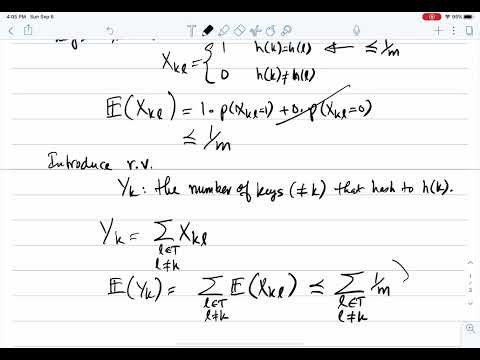 4:05 PM Sun Sep 6
99%
X_{kl} = { 1 h(k)=h(l) ← ≤ 1/m
0 h(k)≠h(l)
E(X_{kl}) = 1 · p(X_{kl}=1) + 0 · p(X_{kl}=0)
≤ 1/m
Introduce r.v.
Y_k : the number of keys (≠k) that hash to h(k).
Y_k = Σ_{l∈T, l≠k} X_{kl}
E(Y_k) = Σ_{l∈T, l≠k} E(X_{kl}) ≤ Σ_{l∈T, l≠k} 1/m